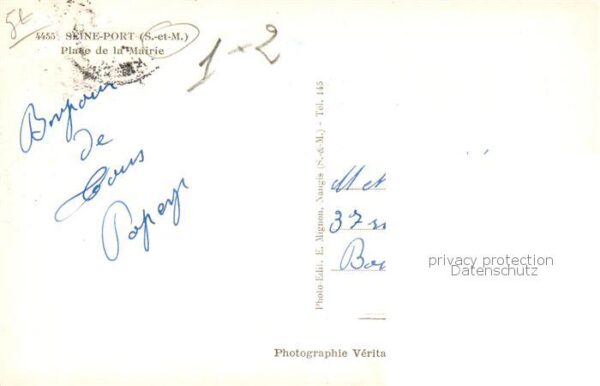 4455 SEINE-PORT (S.-et-M.)
Place de la Mairie
1-2
Bonjour
de
tous
Photo-Edit. E. Mignon, Nangis (S.-&-M.) - Tél. 145
37
privacy protection
Datenschutz
Photographie Vérita